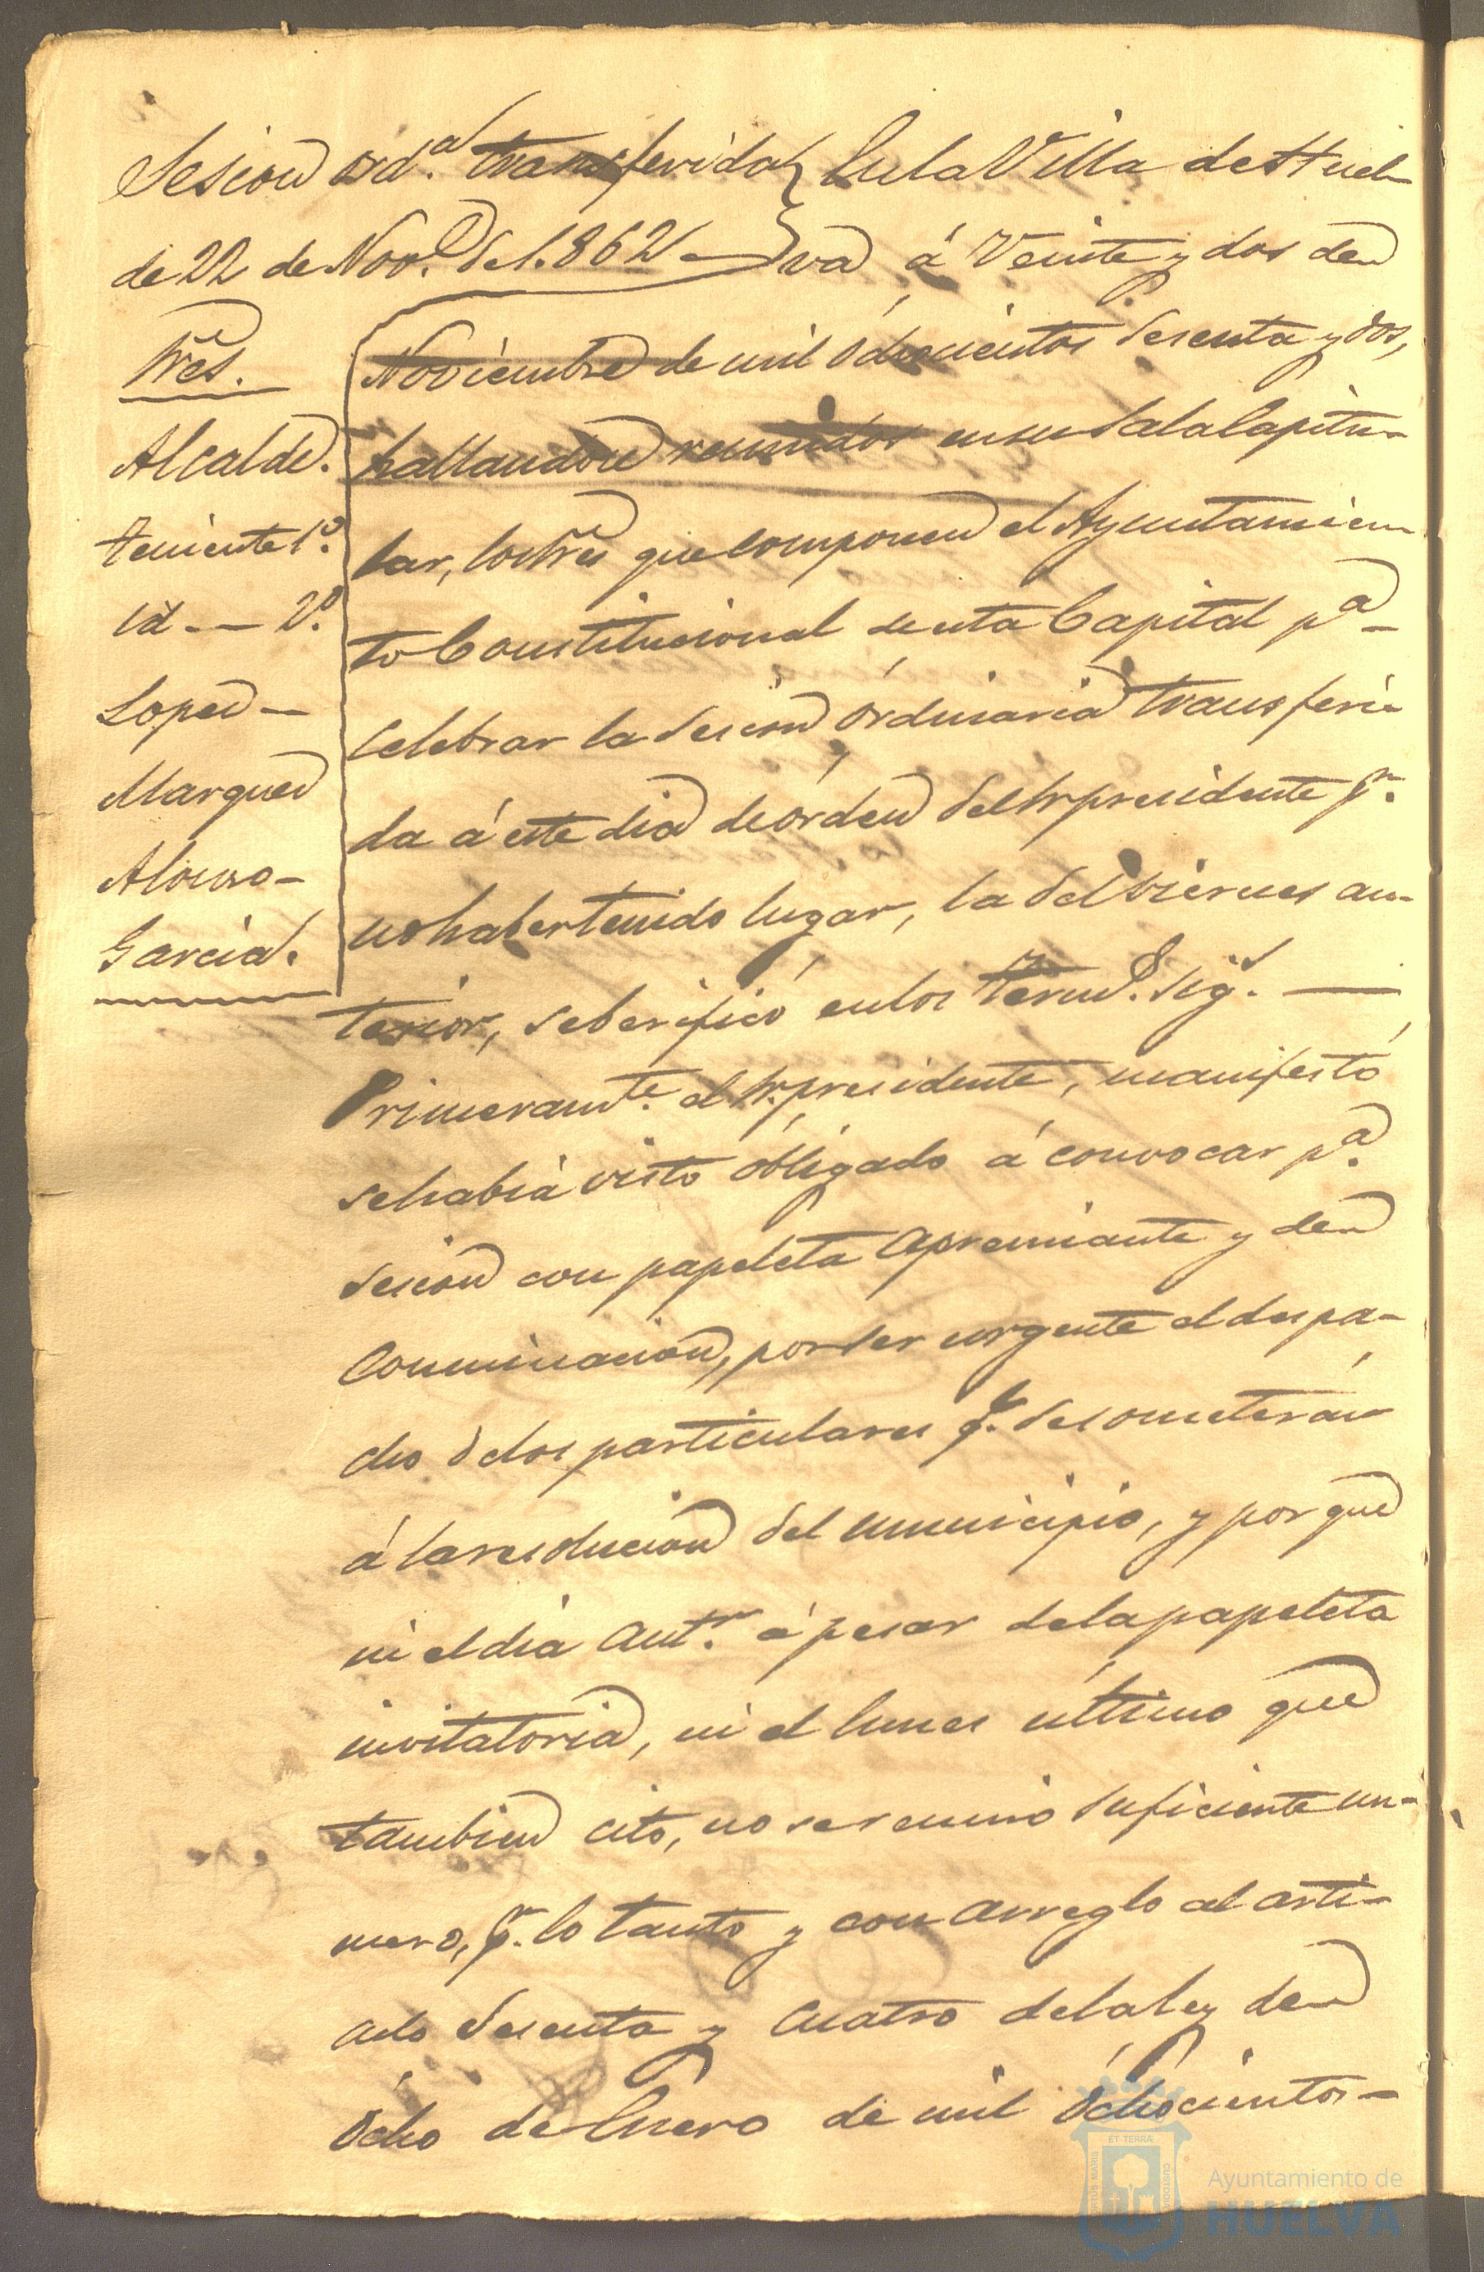 Sesion ord.ª transferida
de 22 de Nov.e de 1.862
Sres.
Alcalde.
teniente 1º.
id -- 2º.
Lopez -
Marquez
Alonso -
Garcia.
En la Villa de Huel-
va á Veinte y dos de
Noviembre de mil óchocientos sesenta y dos,
hallandose reunidos en su Sala Capitu-
lar, los Sres que componen el Ayuntamien-
to Constitucional de esta Capital pª
celebrar la sesion órdinaria transferi-
da á este dia de órden del Sr presidente p.r
no haber tenido lugar, la del viernes an-
terior, se berificó en los term.s sig.s
Primeram.te el Sr. presidente, manifestó
se habia visto óbligado á convocar pª.
sesion con papeleta apremiante y de
conminacion, por ser urgente el despa-
cho de los particulares q.e se someterán
á la resolucion del municipio, y por que
ni el dia ant.r á pesar de la papeleta
invitatoria, ni el lunes último que
tambien citó, no se reunió suficiente nú-
mero, p.r lo tanto y con arreglo al arti-
culo sesenta y cuatro de la ley de
ócho de Enero de mil óchocientos -
ET TERRA
Ayuntamiento de
HUELVA